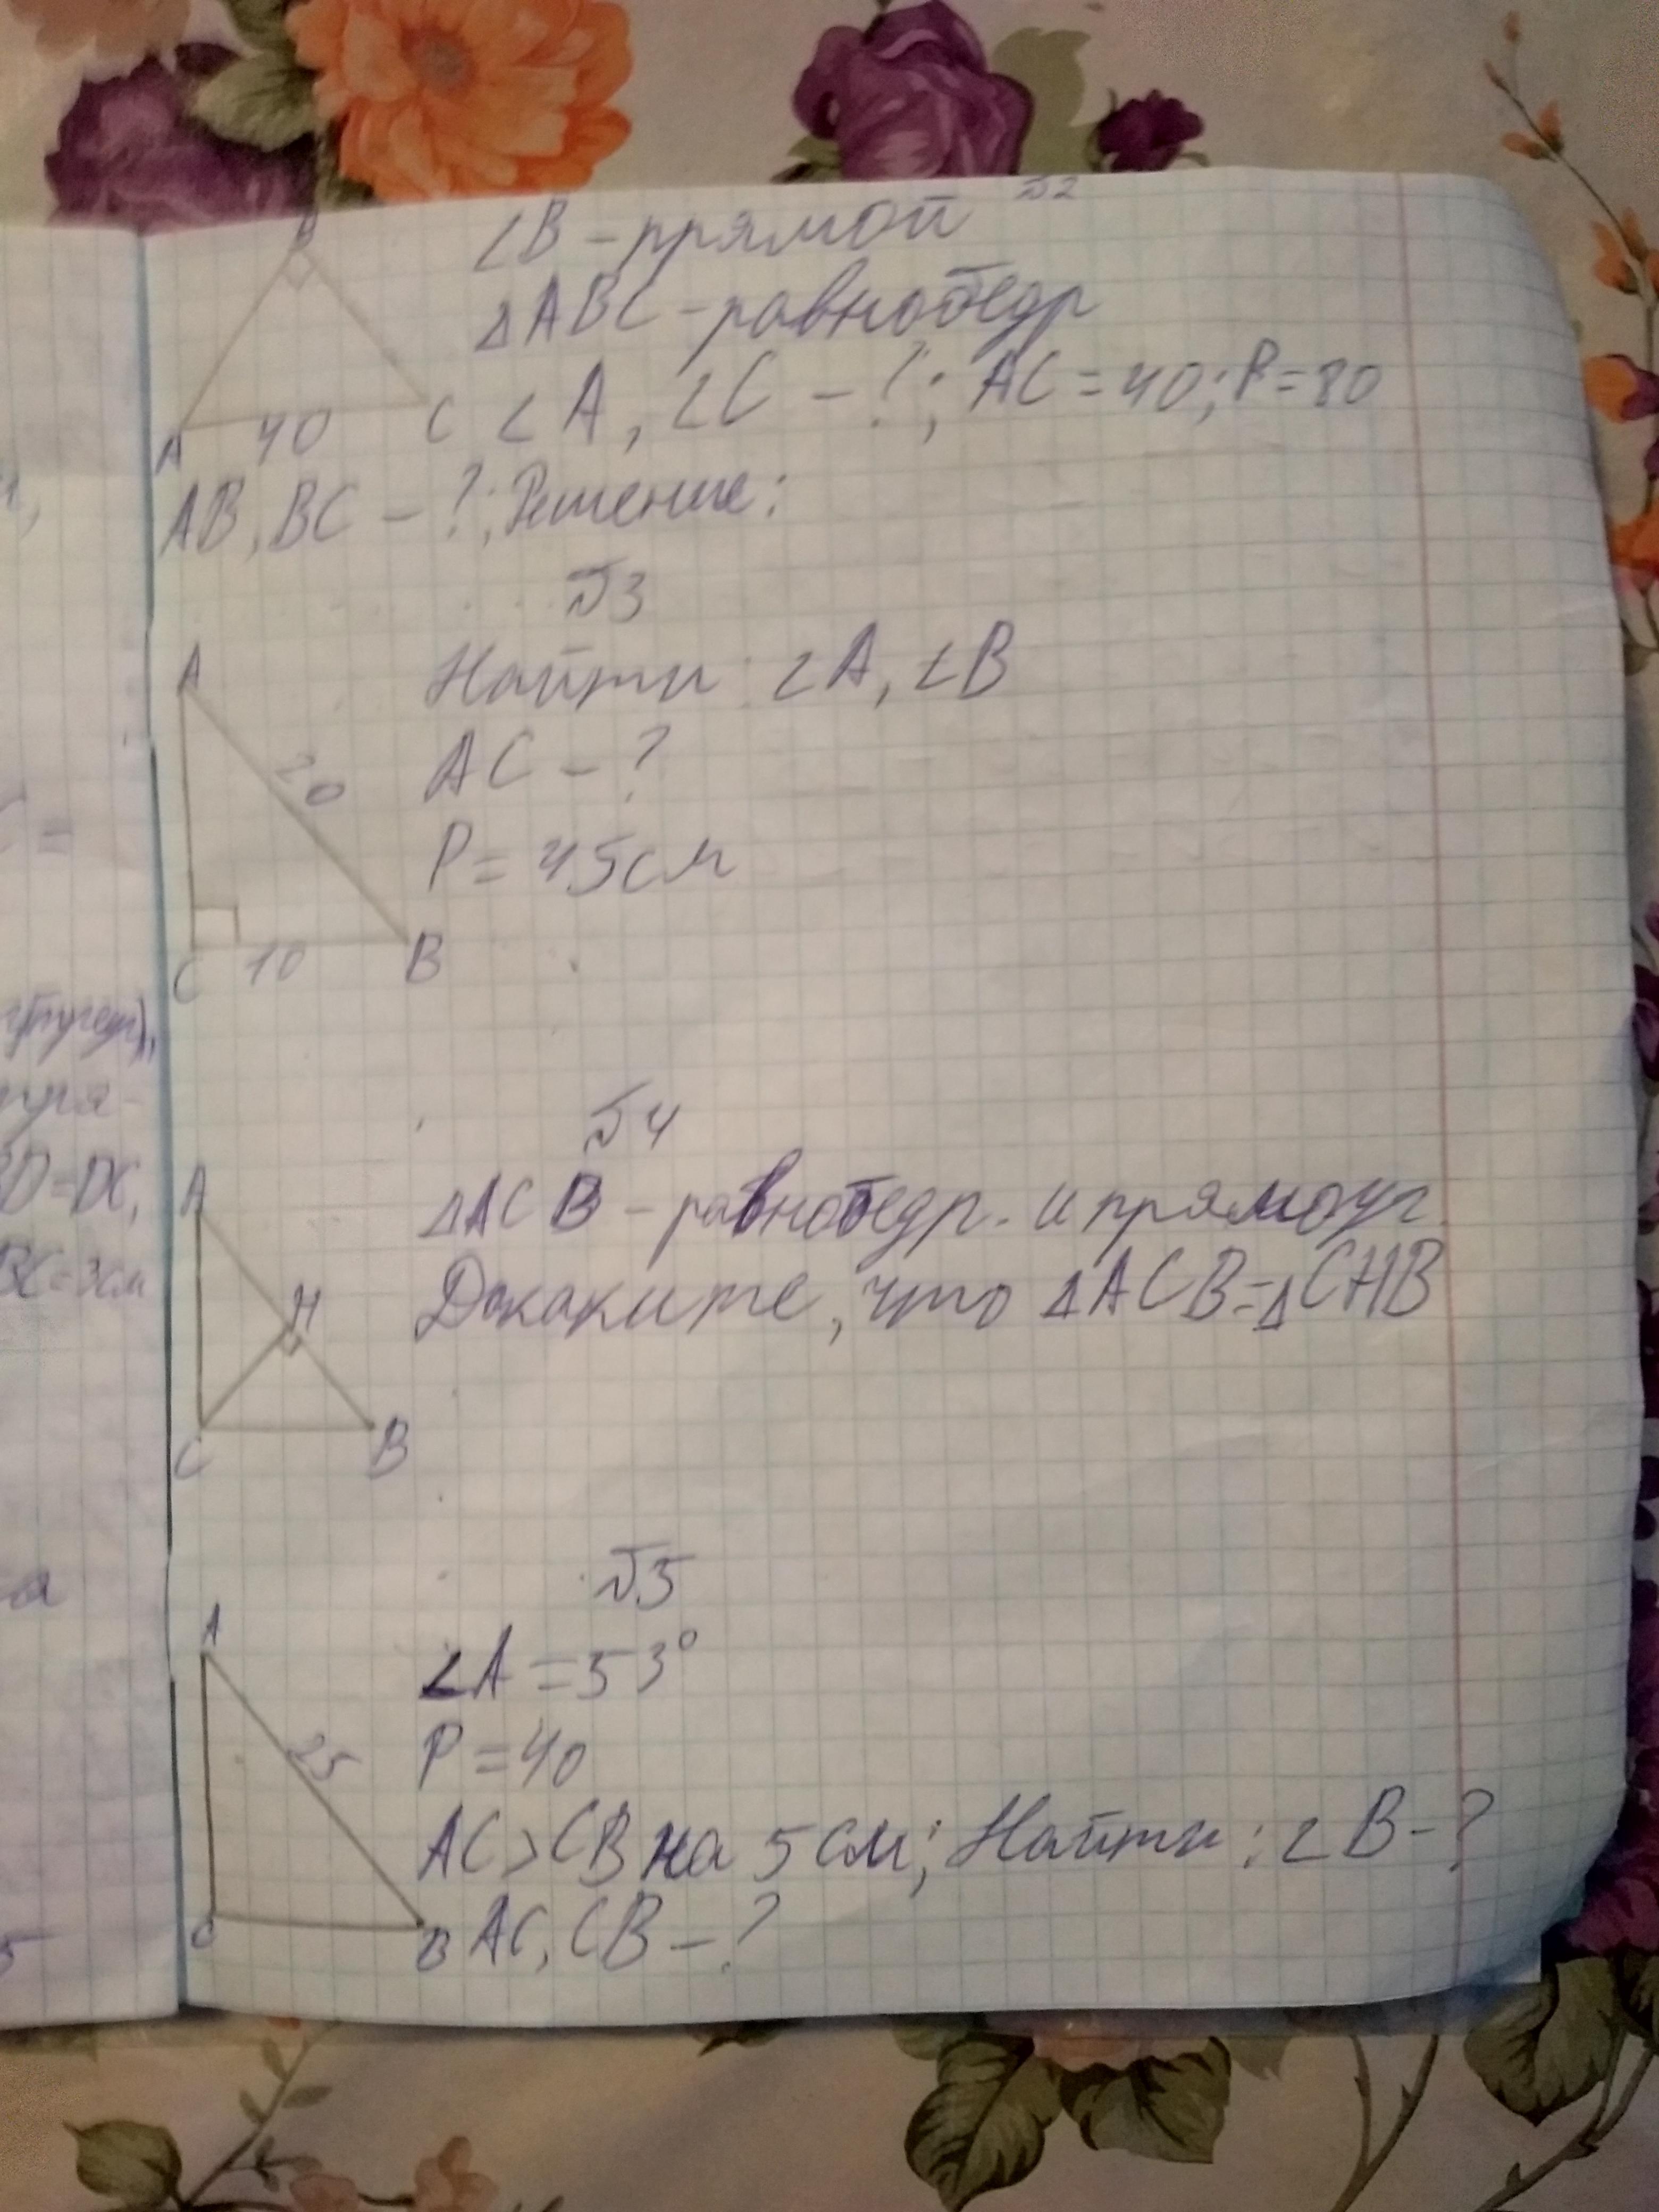 №2
B
∠B - прямой
△ABC - равнобедр
A 40 C ∠A, ∠C - ?; AC = 40; P = 80
AB, BC - ?; Решение:
№3
A
Найти: ∠A, ∠B
20
AC - ?
P = 45см
C 10 B
№4
A
△ACB - равнобедр. и прямоуг
H
Докажите, что △ACB = △CHB
C B
№5
A
∠A = 53°
25
P = 40
AC > CB на 5 см; Найти: ∠B - ?
C B AC, CB - ?
BD = DC,
BC = 3см